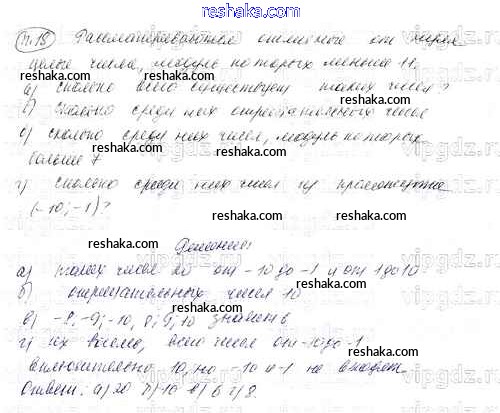 reshaka.com
п.18 Рассматриваются отличные от нуля
целые числа, модуль которых меньше 11.
а) сколько всего существует таких чисел?
б) сколько среди них отрицательных чисел
в) сколько среди них чисел, модуль которых
больше 7
г) сколько среди них чисел из промежутка
(-10; -1)?
Решение:
а) таких чисел 20 от -10 до -1 и от 1 до 10
б) отрицательных чисел 10
в) -8, -9, -10, 8, 9, 10 значит 6
г) их восемь, всего чисел от -10 до -1
включительно 10, но -10 и -1 не входят.
Ответ: а) 20 б) 10 в) 6 г) 8.
reshaka.com